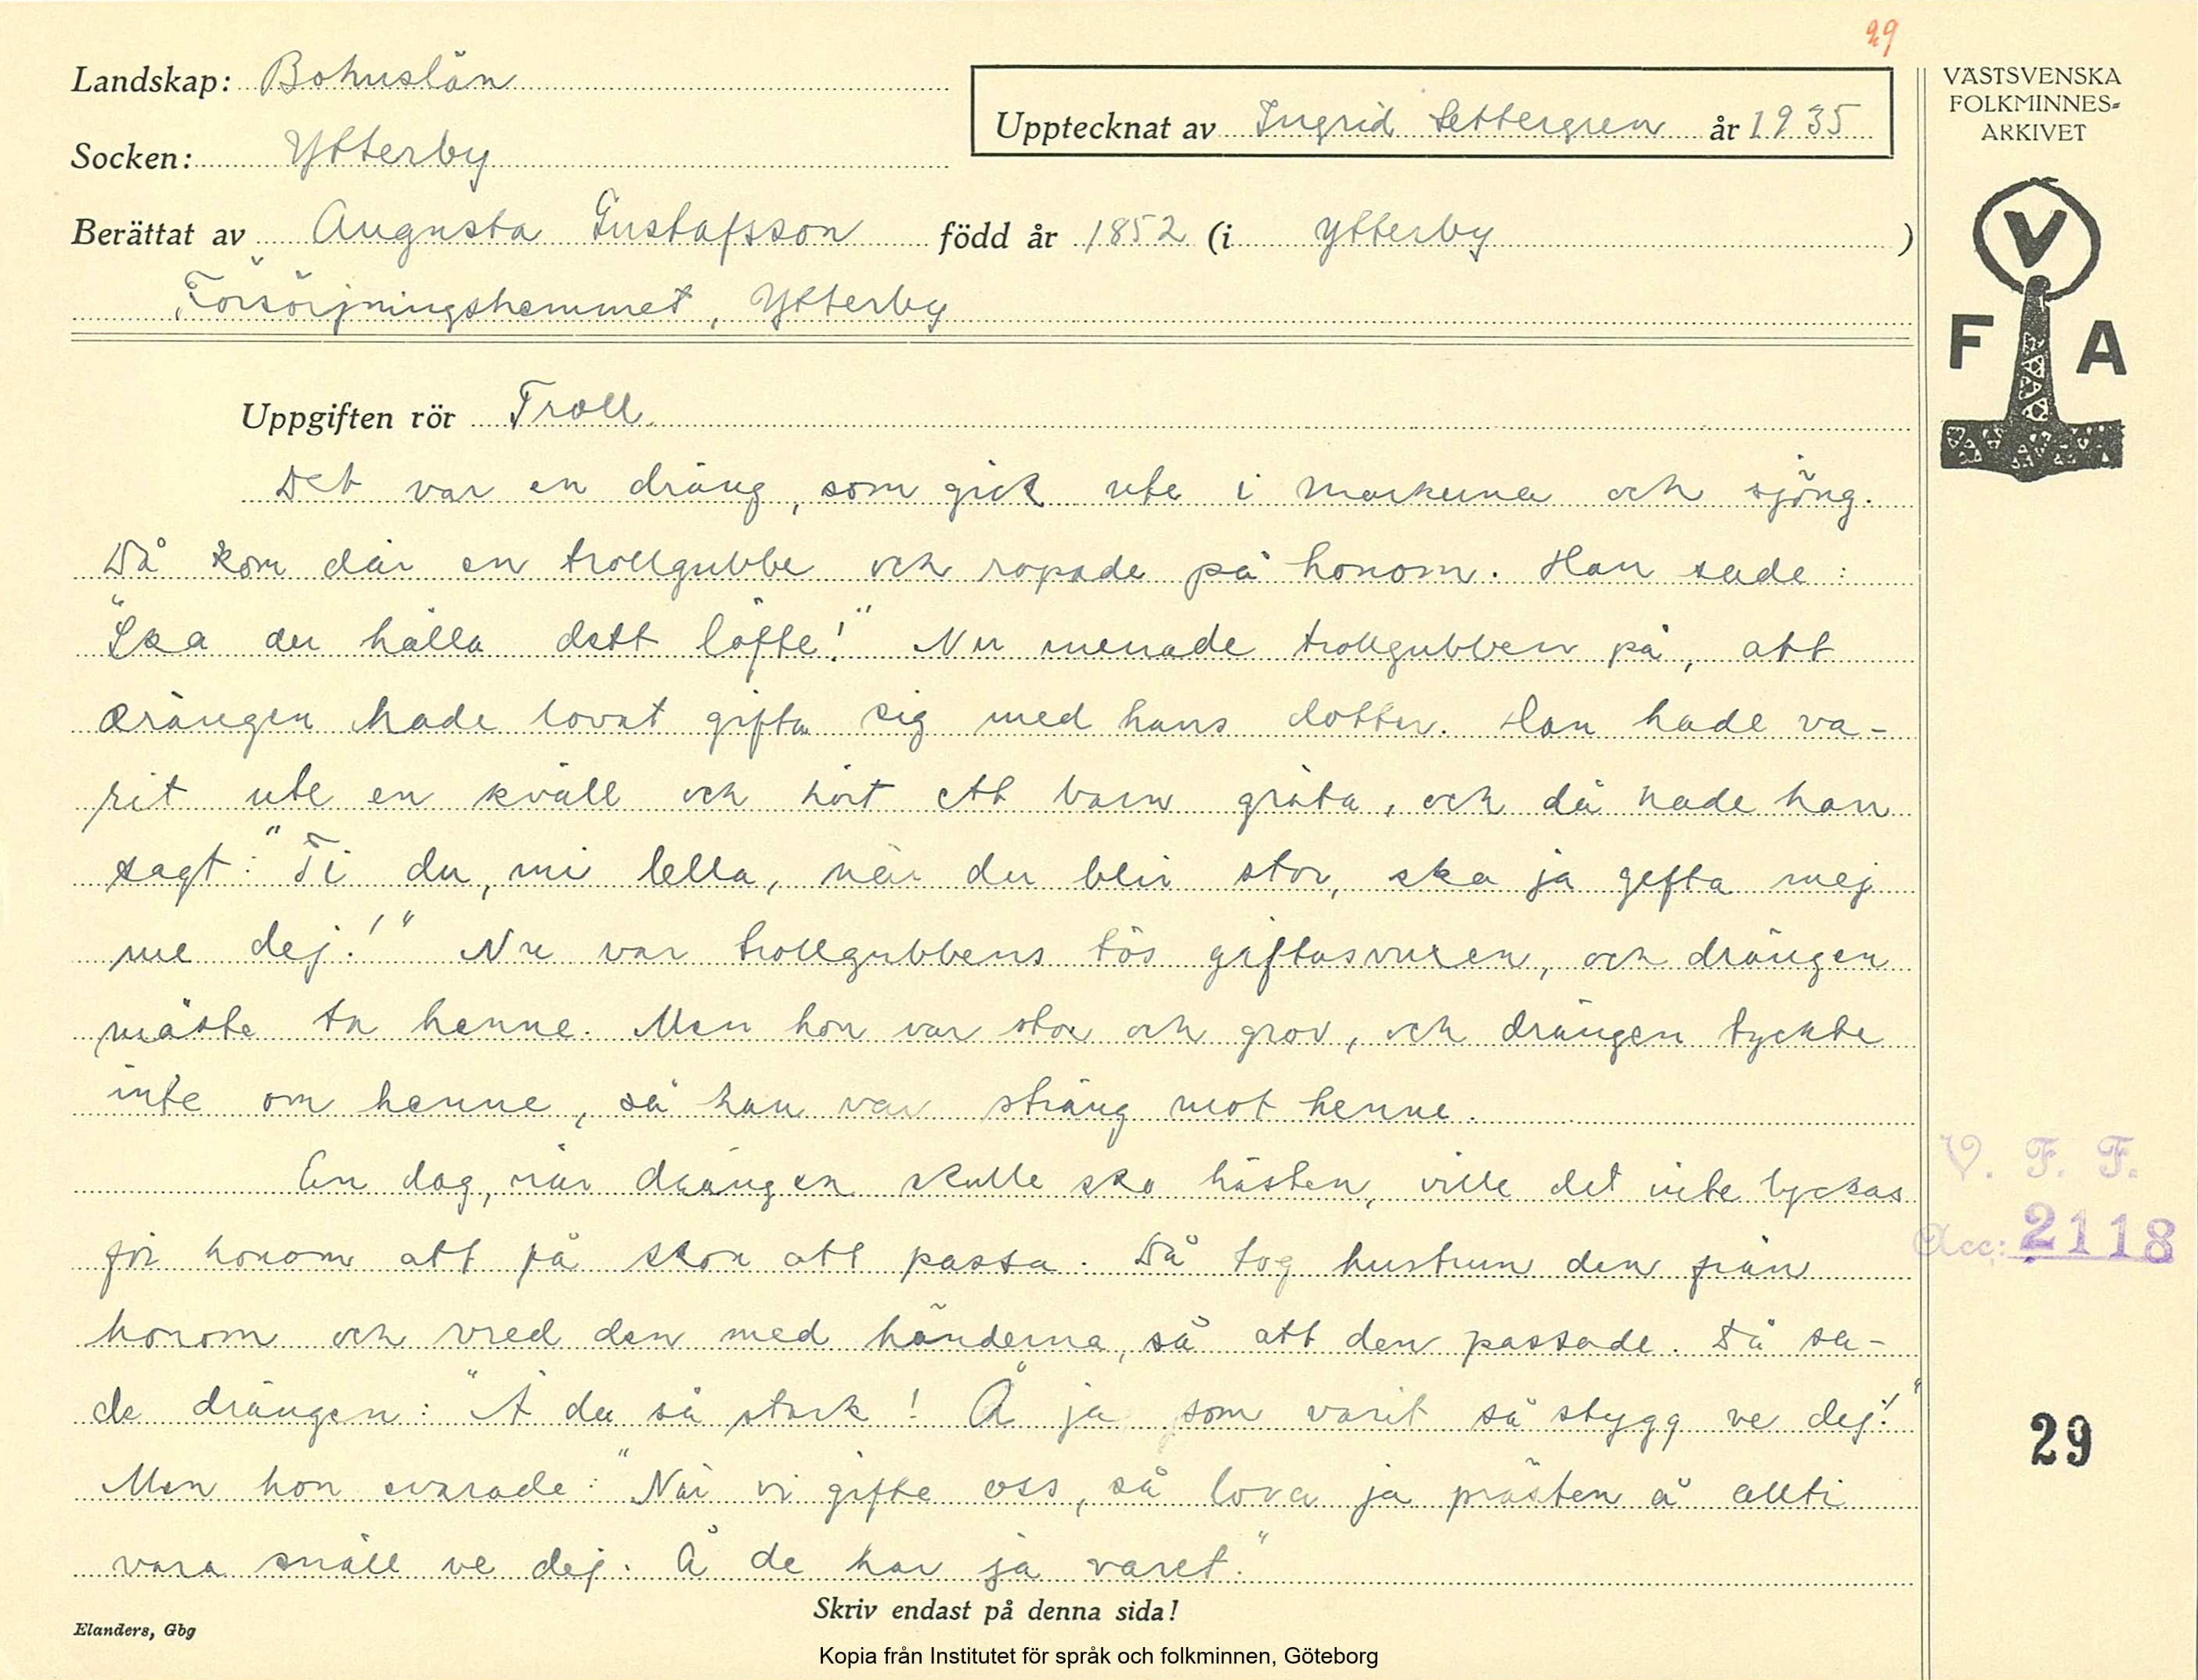 29
Landskap: Bohuslän
Socken: Ytterby
Upptecknat av Ingrid Settergren år 1935
Berättat av Augusta Gustafsson född år 1852 (i Ytterby )
Försörjningshemmet, Ytterby
VÄSTSVENSKA
FOLKMINNES-
ARKIVET
V
F A
Uppgiften rör Troll.
Det var en dräng, som gick ute i markerna och sjöng.
Då kom där en trollgubbe och ropade på honom. Han sade:
"Ska du hålla dett löfte!" Nu menade trollgubben på, att
drängen hade lovat gifta sig med hans dotter. Han hade va-
rit ute en kväll och hört ett barn gråta, och då hade han
sagt: "Ti du, mi lella, när du blir stor, ska ja gefta mej
me dej!" Nu var trollgubbens tös giftasvuxen, och drängen
måste ta henne. Men hon var stor och grov, och drängen tyckte
inte om henne, så han var sträng mot henne.
En dag, när drängen skulle sko hästen, ville det inte lyckas
för honom att få skon att passa. Då tog hustrun den från
honom och vred den med händerna, så att den passade. Då sa-
de drängen: "Ä du så stark! Å ja som varit så stygg ve dej!"
Men hon svarade: "När vi gifte oss, så lova ja prästen å allti
vara snäll ve dej. Å de har ja varet."
V. F. F.
Acc: 2118
29
Skriv endast på denna sida!
Elanders, Gbg
Kopia från Institutet för språk och folkminnen, Göteborg